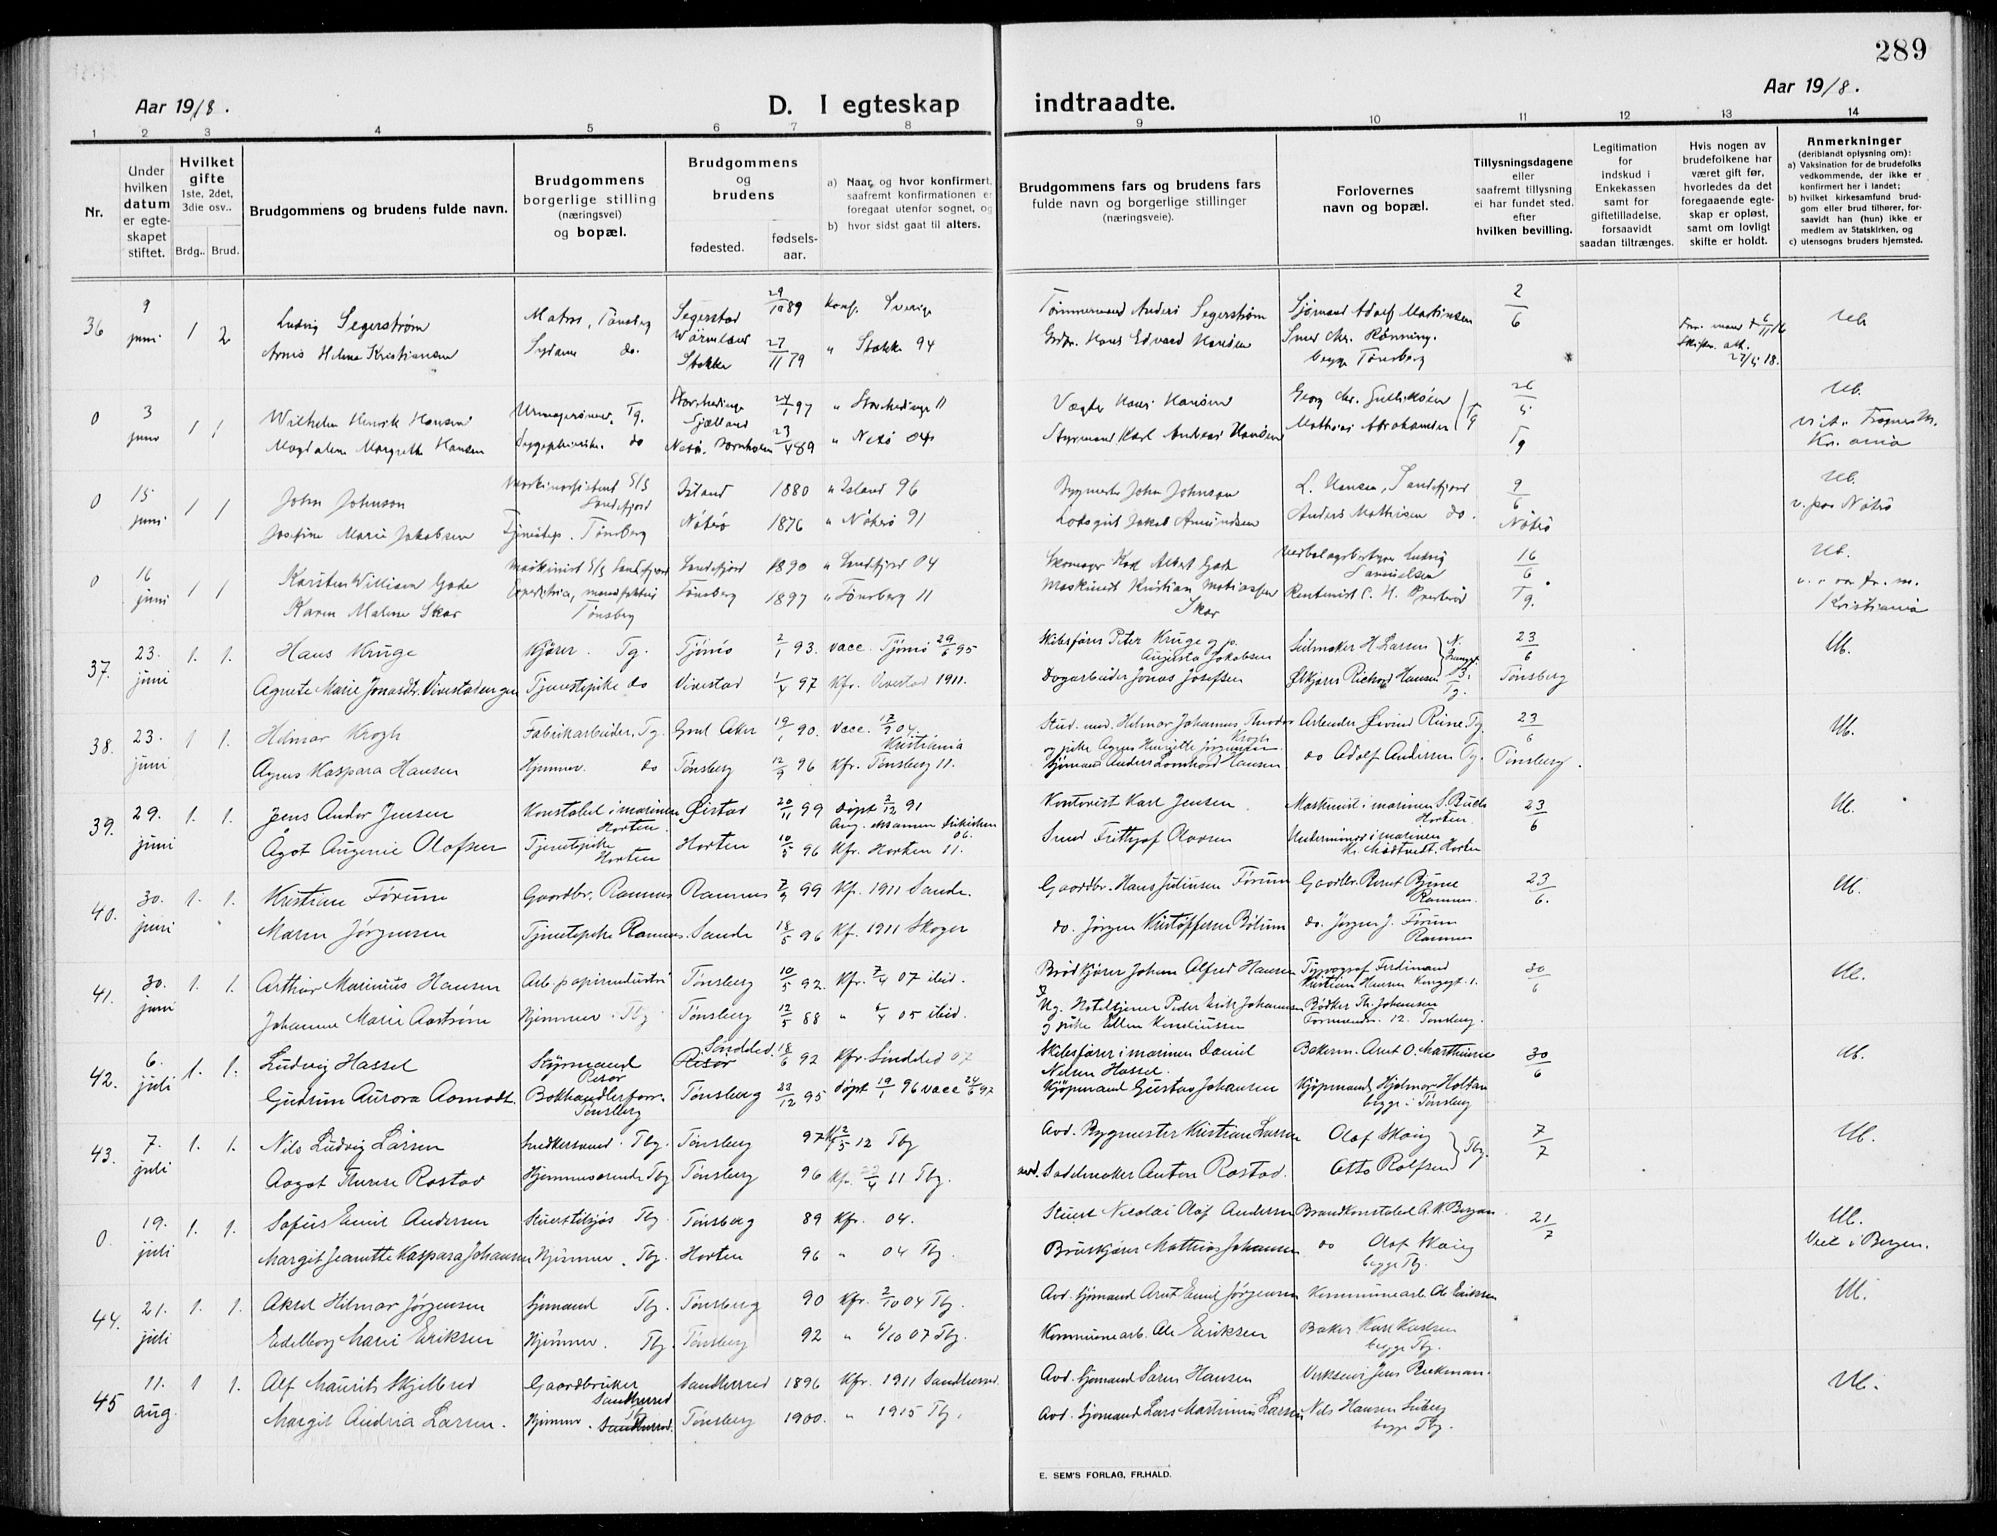 289
Aar 1918.
D. I egteskap indtraadte.
Aar 1918.
1 2 3 4 5 6 7 8 9 10 11 12 13 14
Nr.
Under
hvilken
datum
er egte-
skapet
stiftet.
Hvilket
gifte
1ste, 2det,
3die osv..
Brdg.. Brud.
Brudgommens og brudens fulde navn.
Brudgommens
borgerlige stilling
(næringsvei)
og bopæl.
Brudgommens
og
brudens
fødested.
fødsels-
aar.
a) Naar og hvor konfirmert,
saafremt konfirmationen er
foregaat utenfor sognet, og
b) hvor sidst gaat til alters.
Brudgommens fars og brudens fars
fulde navn og borgerlige stillinger
(næringsveie).
Forlovernes
navn og bopæl.
Tillysningsdagene
eller
saafremt tillysning
ei har fundet sted.
efter
hvilken bevilling.
Legitimation
for
indskud i
Enkekassen
samt for
giftetilladelse,
forsaavidt
saadan tiltrænges.
Hvis nogen av
brudefolkene har
været gift før,
hvorledes da det
foregaaende egte-
skap er opløst,
samt om lovligt
skifte er holdt.
Anmerkninger
(deriblandt oplysning om):
a) Vaksination for de brudefolks
vedkommende, der ikke er
konfirmert her i landet;
b) hvilket kirkesamfund brud-
gom eller brud tilhører, for-
saavidt han (hun) ikke er
medlem av Statskirken, og
c) utensogns bruders hjemsted.
36 9 juni 1 2
Ludvig Segerström Matros, Tönsberg Segerstad Wärmland 29/10 89 Konf. Sverige Tømmermand Anders Segerström Sjømand Adolf Martinsen 2/6 Ub.
Helene Kristiansen do. Stokke 27/11 79 " Stokke 94 Hans Edvard Hansen Chr. Rønning. begge Tønsberg
0 3 juni 1 1
Wilhelm Henrik Hansen Tg. Sjælland 97 " 11 Vægter Hans Hansen Georg Chr. Gulliksen Tg 26/5 Ub.
Magdalene Margrethe Hansen do Nexö, Bornholm 23/4 89 " Nexö 04 Styrmand Karl Andreas Hansen Mathias Abrahamsen Tg Kr.ania
0 15 juni 1 1
John Johnson Sandefjord Island 1880 " Island 96 Bygmester John Johnson L. Hansen, Sandefjord 9/6 Ub.
Josefine Marie Jakobsen Tønsberg Nøterø 1876 " Nøterø 91 Lods Jakob Amundsen Anders Mathisen do. Nøterø
0 16 juni 1 1
Karsten William Gade Maskinist S/S Sandefjord Sandefjord 1890 " Sandefjord 04 Skomager Karl Albert Gade Ludvig Samuelsen 16/6 Ub.
Karen Malene Skar Tønsberg Tønsberg 1897 " Tønsberg 11 Maskinist Kristian Matiassen Skar Rentenist Tg. Kristiania
37. 23. juni 1. 1.
Hans Kruge Kjører. Tg. Tjömö 2/1 93. vacc. Tjömö 29/6 95 Skibsfører Peter Kruge og p. Augusta Jakobsen Seilmaker H Larsen 23/6 Ub.
Agnete Marie Jonasdtr. Vivestad Tjenestepike do Vivestad 1/4 97 Kfr. Vivestad 1911. Dagarbeider Jonas Josefsen Richard Hansen Tg. Tønsberg
38. 23. juni 1 1.
Hilmar Krogh Fabrikarbeider, Tg. Gml Aker 19/1 90. Vacc. 04. Kristiania Stud. med. Hilmar Johannes Theodor Krogh og pike Agnes Henriette Jørgensen Arbeider Øivind Riise. Tg. 23/6 Ub.
Agnes Kaspara Hansen Hjemme. do Tønsberg 12/9 96 Kfr. Tønsberg 11. Sjømand Anders Hansen do Adolf Andersen Tg. Tønsberg.
39. 29. juni 1. 1.
Jens Andor Jensen Konstabel i marinen Horten Øistad 20/11 99 Døpt 2/12 91 Kontorist Karl Jensen. Maskinist i marinen Horten. 23/6 Ub.
Ågot Augenie Olafsen Tjenestepike Horten Horten 10/5 96 Kfr. Horten 11. Smed Frithjof Olavsen Underminør i marinen Horten
40. 30. juni 1. 1.
Kristian Førum Gaardbr. Ramnes Ramnes 99 Kf. 1911 Sande. Gaardbr. Hans Juliusen Førum Gaardbr. Ramnes. 23/6. Ub.
Maren Jørgensen Tjenestepike Ramnes. Sande 18/5 96 Kf. 1911 Skoger do. Jørgen Kristoffersen do. Jørgen J. Førum Ramnes
41. 30. juni 1. 1.
Arthur Marinius Hansen Arb. papirindustri Tønsberg 10/5 92. Kfr. 7/4 07 ibid. Brødkjører Johan Alfred Hansen Typograf Ferdinand Kristian Hansen 30/6 Ub.
Johanne Marie Aastrøm Hjemme. Tbg. Tønsberg 12/5 88 " 05 ibid. Ug. Hoteltjener Peder Erik Johannessen og pike Ellen Korneliussen Bødker Th. Johansen 12. Tønsberg.
42. 6. juli 1. 1.
Ludvig Hassel Styrmand Risør Risør Sønddeled. 18/6 92 Kfr. Sønddeled 07 Skibsfører i marinen Daniel Nelsen Hassel. Bakerm. Arnt O. Marthinse 30/6 Ub.
Gudrun Aurora Aamodt. Bokhandlerforr. Tønsberg Tønsberg 23/12 95 døpt 19/1 96 vacc 24/6 97 Kjøpmand Gustav Johansen Kjøpmand Hjalmar Holtan begge i Tønsberg
43. 7. juli 1. 1.
Nils Ludvig Larsen Snedkersvend. Tbg. Tønsberg 97 Kf 5 12 Tbg Avd. Bygmester Kristian Larsen Olaf Skoug Tbg. 7/7 Ub.
Aagot Therese Rostad Hjemmeværende Tbg Tønsberg 96 Kfr. 23/4 11 Tbg. Sadelmaker Anton Rostad. Otto Rolfsen
0. 19. juli 1. 1.
Sofus Emil Andersen Stuert tilsjøs Tbg. Tønsberg 89 Kfr. 04. Stuert Nicolai Olaf Andersen Brandkonstabel A. K. Bergan 21/7 Ub.
Margit Jeanette Kaspara Johansen Hjemme. Tbg. Horten 96 " 04 Tbg. Bruskjører Mathias Johansen do Olaf Skoug begge Tbg. Viet i Bergen.
44. 21. juli 1. 1.
Aksel Hilmar Jørgensen Sjømand Tbg. Tønsberg 90 Kfr. 2/10 04 Tbg. Avd. sjømand Arnt Emil Jørgensen Kommunearb. Ole Eriksen Ub.
Edelborg Marie Eriksen Hjemme. Tbg. Tønsberg 92 " 6/10 07 Tbg. Kommunearb. Ole Eriksen Baker Karl Karlsen begge Tbg.
45 11. aug. 1 1.
Alf Maurits Skjelbred Gaardbruker Sandherred Sandherred 1896 Kfr. 1911 Sandherred. Avd. Sjømand Søren Hansen Jens Bickman. Ub.
Margit Andria Larsen. Hjemme. Tbg Sandherred. Tønsberg 1900. " 1915 Tbg. Avd. Sjømand Lars Martinius Larsen Nils Hansen begge Tbg.
E. SEM'S FORLAG, FR.HALD.